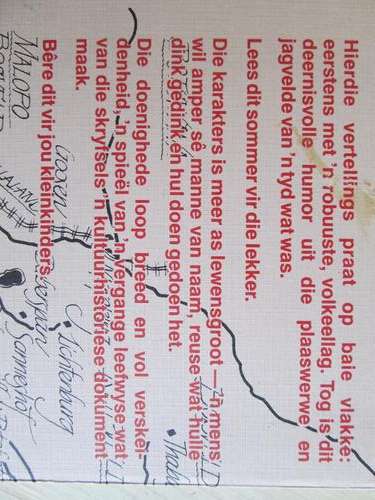 Hierdie vertellings praat op baie vlakke:
eerstens met 'n robuuste, volkseellag. Tog is dit
deernisvolle humor uit die plaaswerwe en
jagvelde van 'n tyd wat was.
Lees dit sommer vir die lekker.
Die karakters is meer as lewensgroot — 'n mens
wil amper sê manne van naam, reuse wat hulle
dink gedink en hul doen gedoen het.
Die doenighede loop breed en vol verskei-
denheid, 'n spieël van 'n vergange leefwyse wat
van die skrysels 'n kultuurhistoriese dokument
maak.
Bêre dit vir jou kleinkinders.
MALOPO
Goosen
Lichtenburg